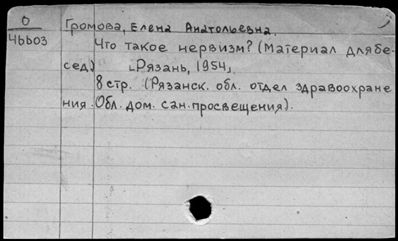 О
46603
Громова, Елена Анатольевна.
Что такое нервизм? (Материал для бе-
сед) [Рязань, 1954].
8 стр. (Рязанск. обл. отдел здравоохране
ния. Обл. дом. сан. просвещения).